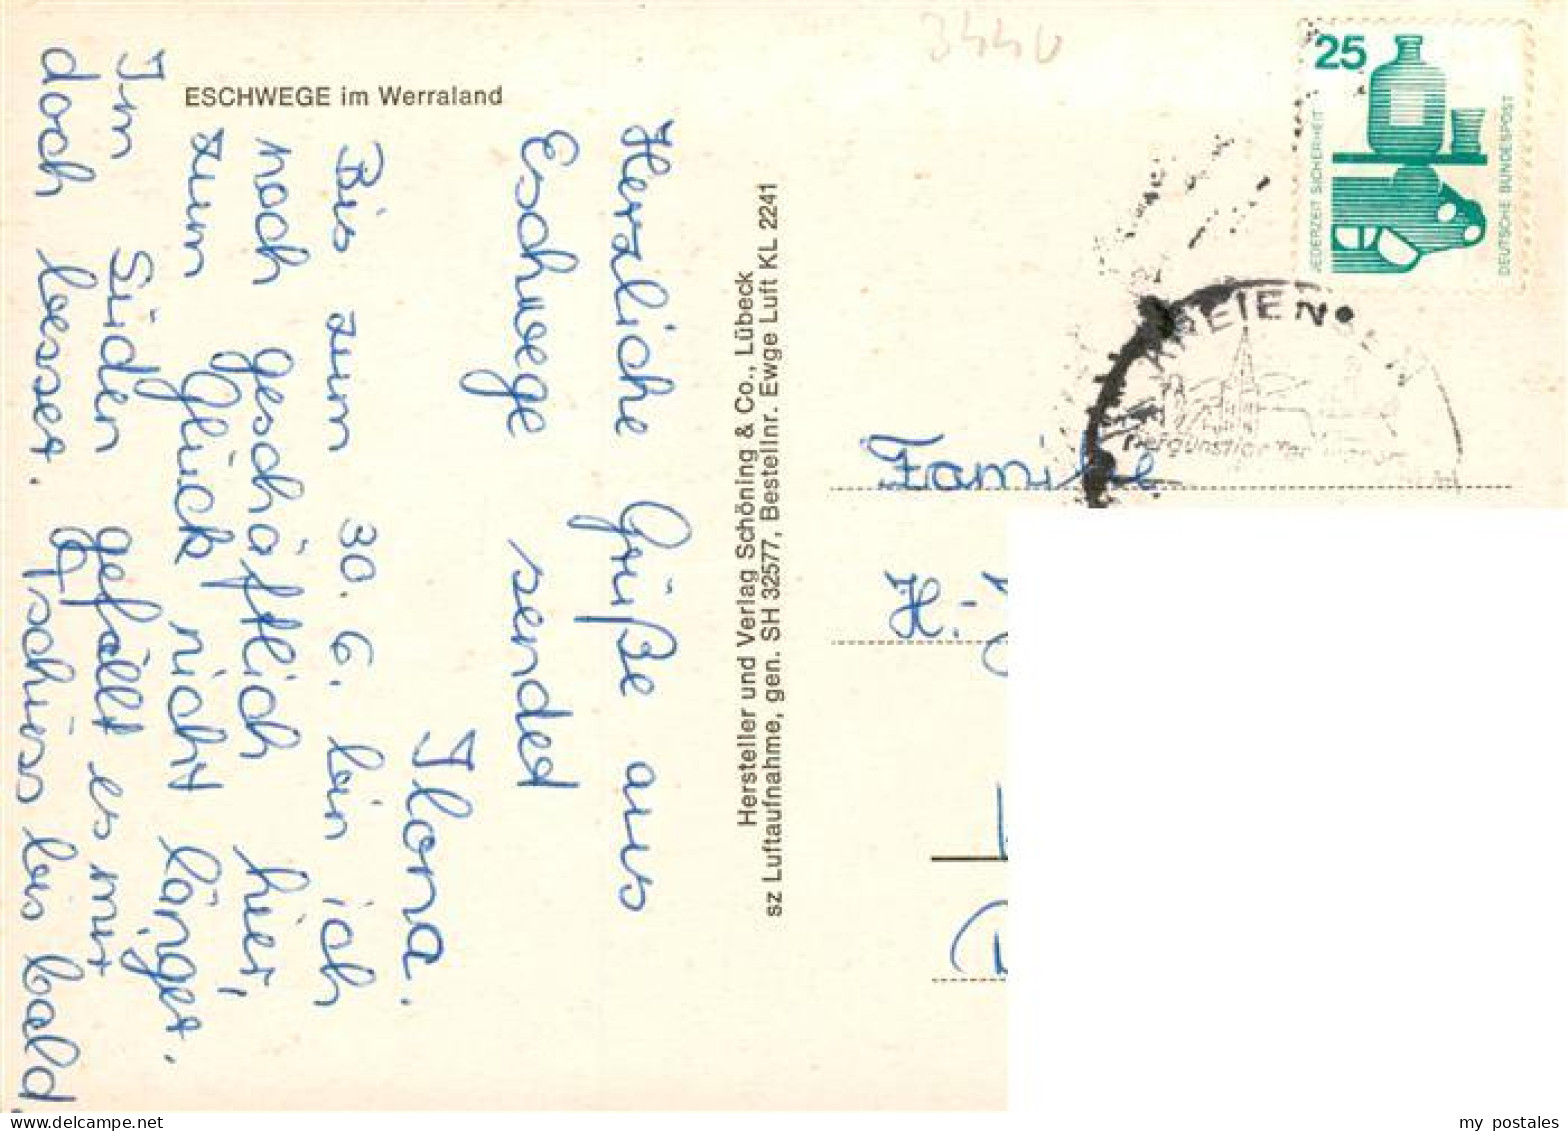 ESCHWEGE im Werraland
Herzliche Grüße aus
Eschwege sendet
Ilona.
Bis zum 30. 6. bin ich
noch geschäftlich hier,
zum Glück nicht länger.
Im Süden gefällt es mir
doch besser. Tschüss bis bald.
Hersteller und Verlag Schöning & Co., Lübeck
sz Luftaufnahme, gen. SH 32577, Bestellnr. Ewge Luft KL 2241
3440
25
JEDERZEIT SICHERHEIT
DEUTSCHE BUNDESPOST
Familie
H.-
my postales